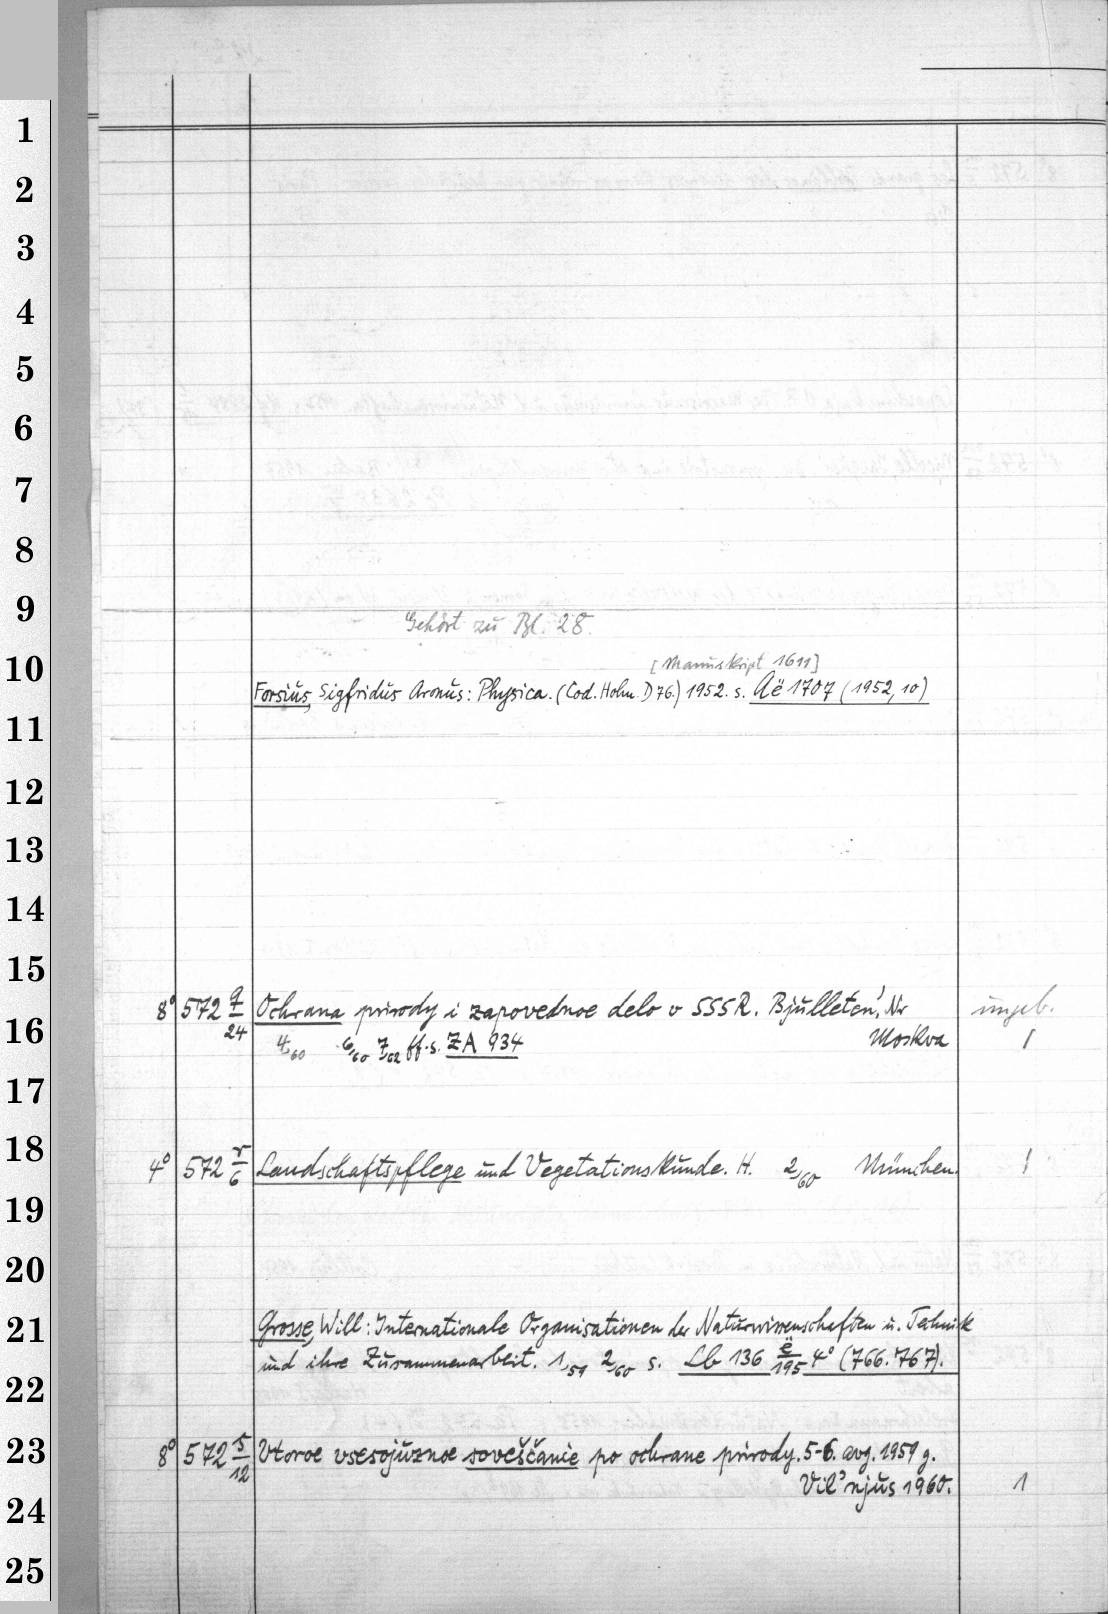 1
2
3
4
5
6
7
8
9
Gehört zu Bl. 28.
10
[Manuskript 1611]
Forsius, Sigfridus Aronus: Physica. (Cod. Holm. D 76.) 1952. s. Aë 1707 (1952, 10)
11
12
13
14
15
8° 572 q/24 Ochrana prirody i zapovednoe delo v SSSR. Bjulleten', Nr ungeb.
16
4/60 6/60 7/62 ff. s. ZA 934 Moskva 1
17
18
4° 572 r/6 Landschaftspflege und Vegetationskunde. H. 2/60 München. 1
19
20
21
Grosse, Will: Internationale Organisationen der Naturwissenschaften u. Technik
und ihre Zusammenarbeit. 1/59 2/60 s. Lb 136 ë/195 4° (766.767).
22
23
8° 572 s/12 Vtoroe vsesojuznoe soveščanie po ochrane prirody. 5-6. avg. 1959 g.
Vil'njus 1960. 1
24
25